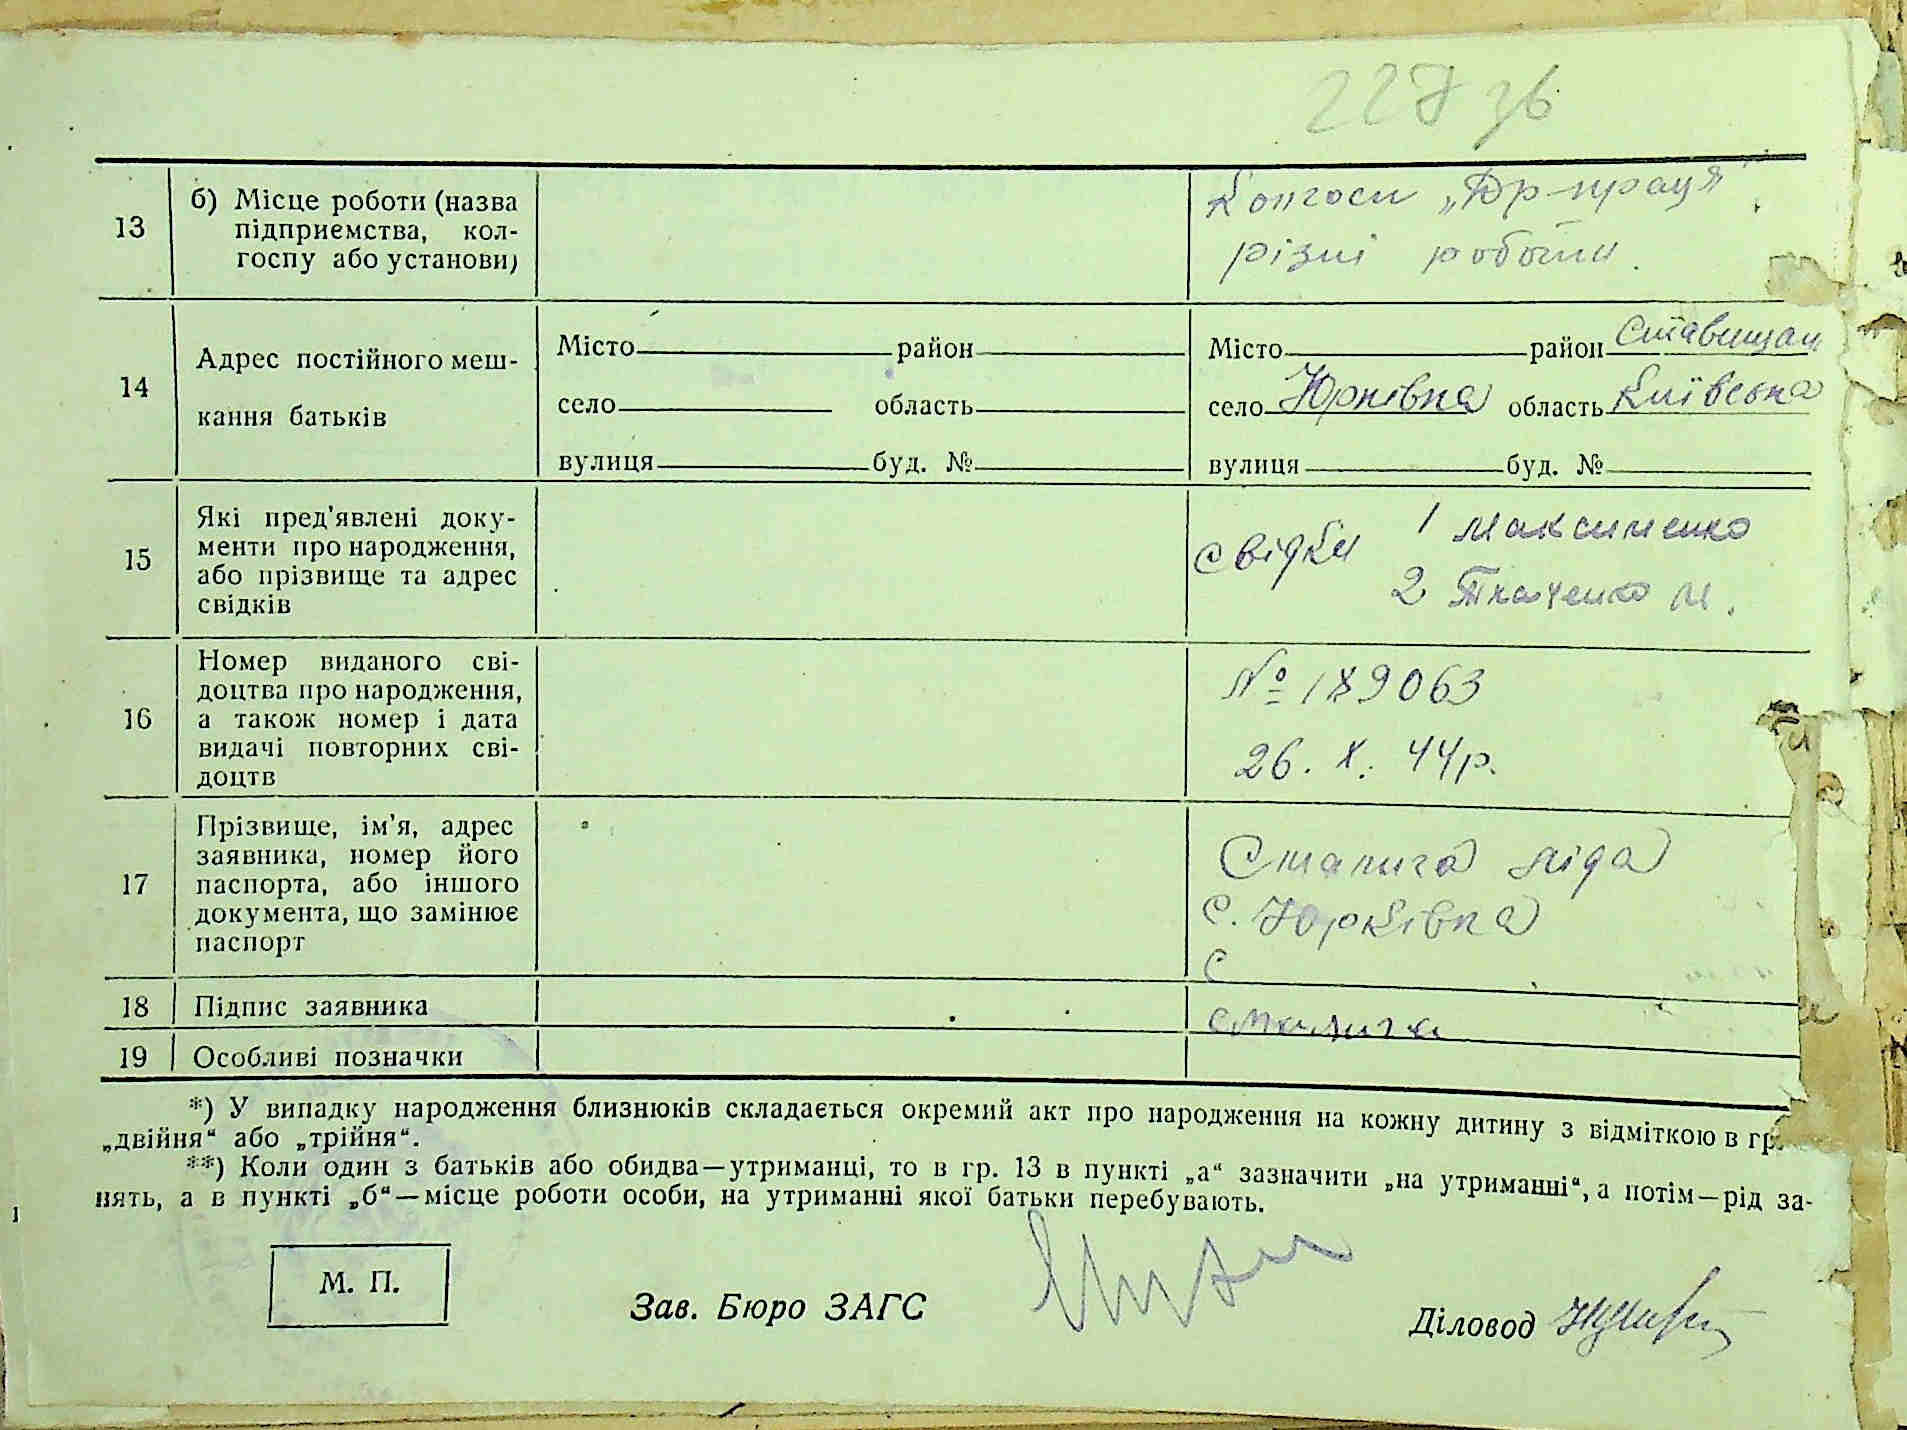 227 зв
13
б) Місце роботи (назва
підприємства, кол-
госпу або установи)
Колгосп „Юр-праця"
різні роботи.
14
Адрес постійного меш-
кання батьків
Місто район
село область
вулиця буд. №
Місто район Ставищан
село Юрківка область Київська
вулиця буд. №
15
Які пред'явлені доку-
менти про народження,
або прізвище та адрес
свідків
Свідки 1 Максименко
2 Ткаченко М.
16
Номер виданого сві-
доцтва про народження,
а також номер і дата
видачі повторних сві-
доцтв
№ 189063
26. X. 44р.
17
Прізвище, ім'я, адрес
заявника, номер його
паспорта, або іншого
документа, що замінює
паспорт
Смалига Ліда
с. Юрківка
с
18 Підпис заявника
смалига
19 Особливі позначки
*) У випадку народження близнюків складається окремий акт про народження на кожну дитину з відміткою в гр.
„двійня“ або „трійня“.
**) Коли один з батьків або обидва—утриманці, то в гр. 13 в пункті „а“ зазначити „на утриманні“, а потім—рід за-
нять, а в пункті „б“—місце роботи особи, на утриманні якої батьки перебувають.
М. П.
Зав. Бюро ЗАГС
Діловод